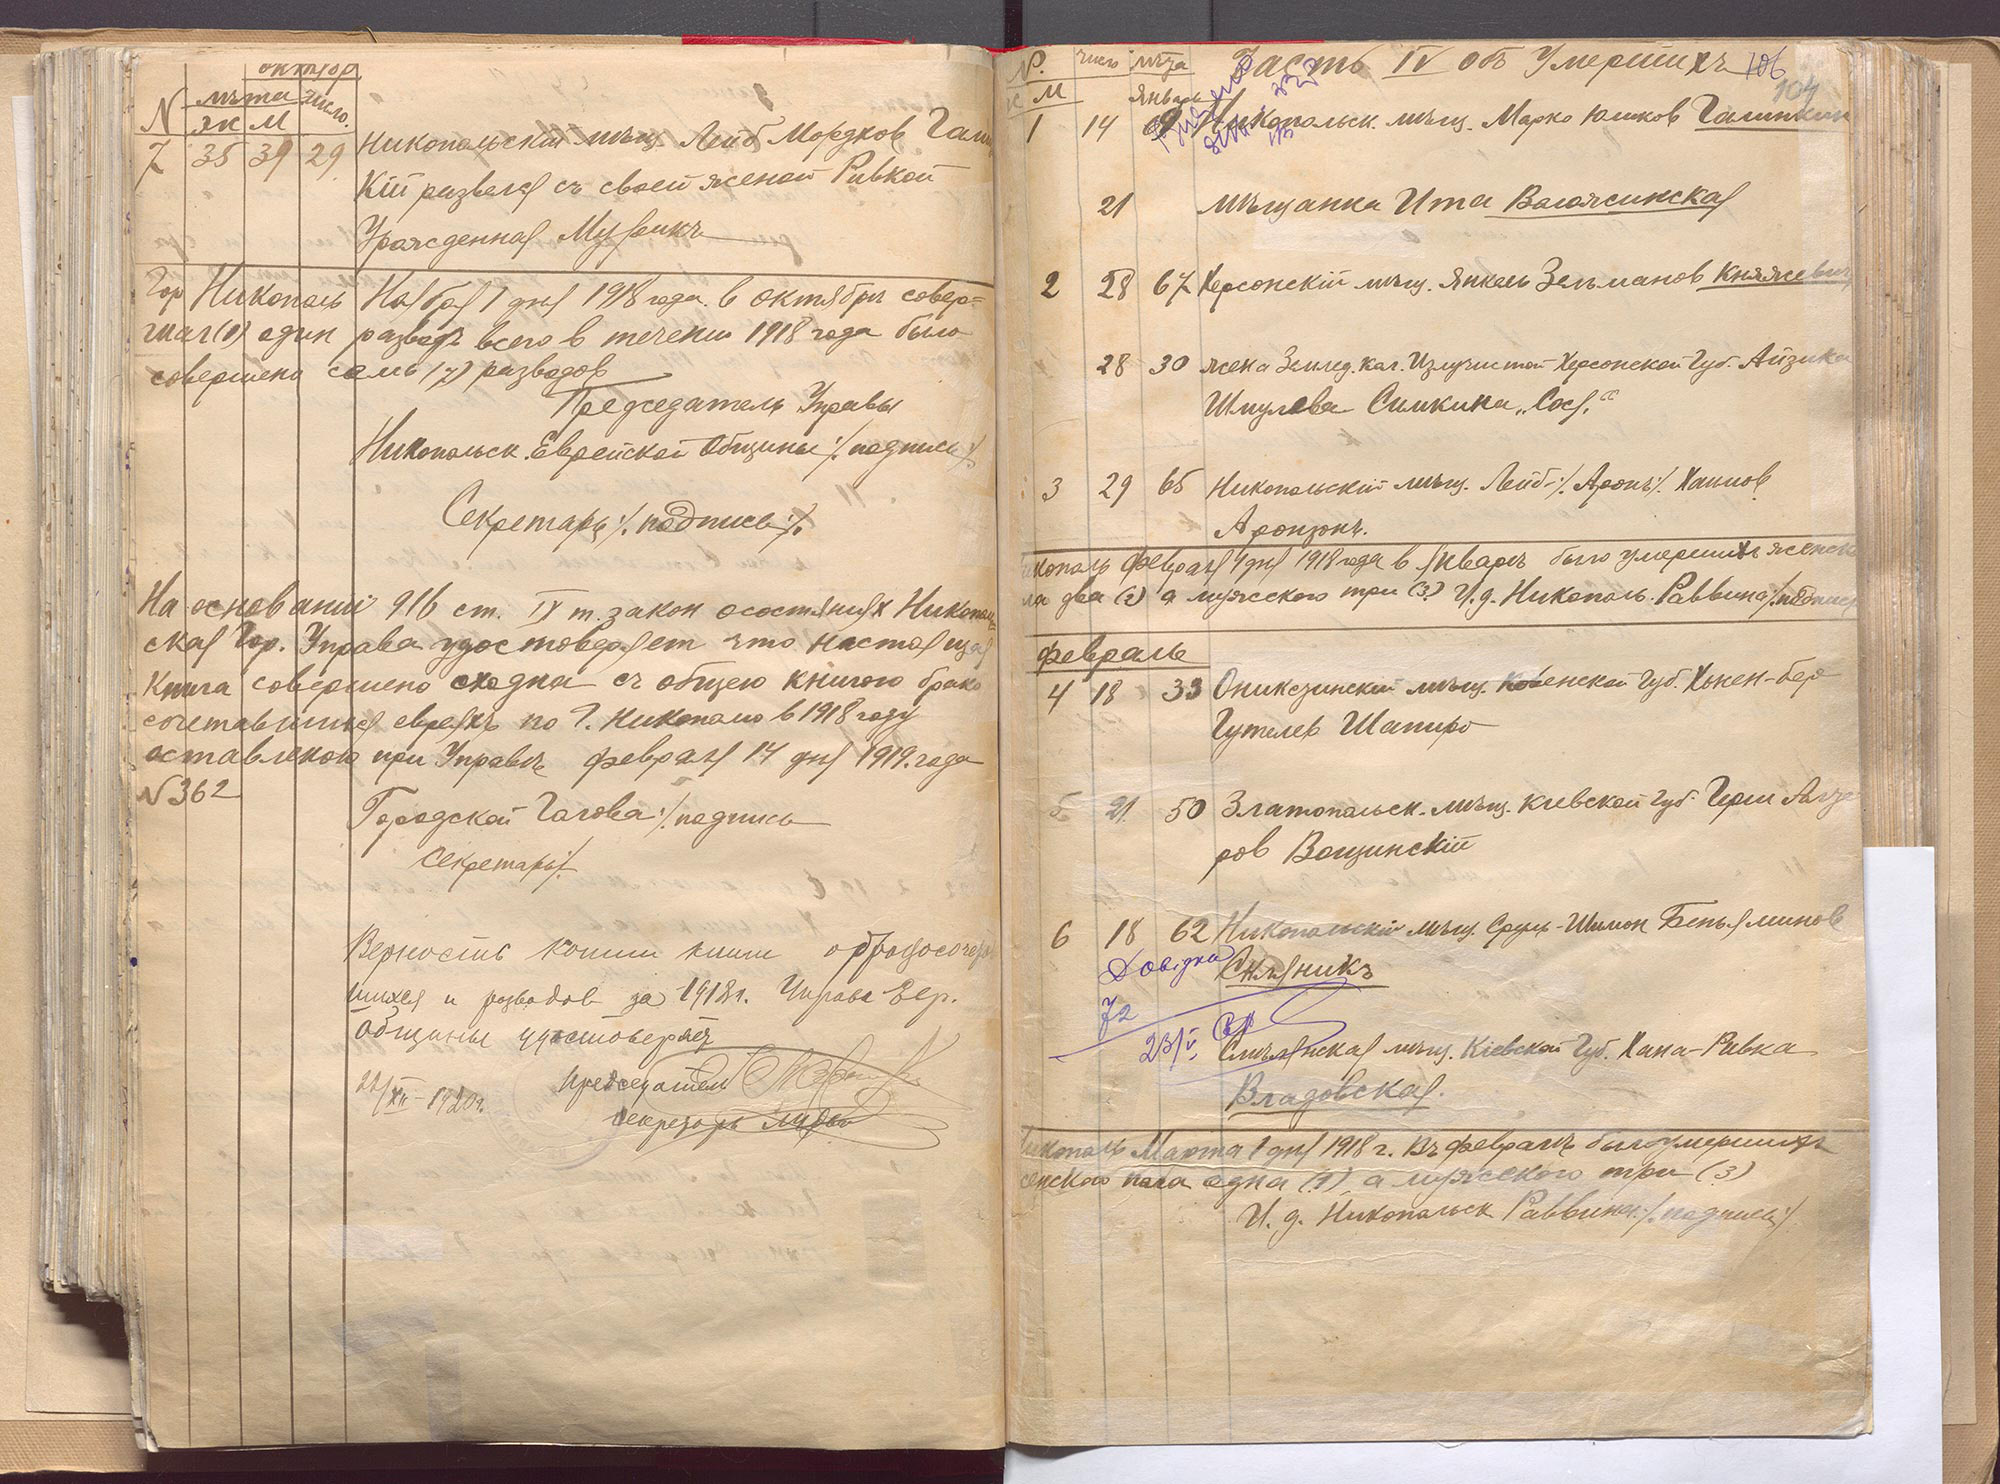 октября
лѣта число.
N жк м
7 35 39 29 Никопольскій мѣщ. Лейб Мордков Гали
кій развелся съ своей женой Ривкой
Урожденная
Гор Никополь Ноября 1 дня 1918 года. в октябрѣ совер=
шал(1) один развод всего в течении 1918 года было
совершено семь (7) разводов
Председатель Управы
Никопольск. Еврейской Общины ⁒ подпись ⁒
Секретарь ⁒ подпись ⁒
На основании 916 ст. IX т. закон о состояниях Никополь
ская Гор. Управа удостоверяет что настоящая
Книга совершено сходна съ общею книгою брако
сочетавшихся евреях по Г. Никополю в 1918 году
оставленою при Управѣ февраля 14 дня 1919. года
N 362
Городской Голова ⁒ подпись
Секретарь ⁒
Верность копии книги о бракосочета
шихся и разводов за 1918 г. Управа Евр.
Общины удостоверяет
22/XII – 1920 г. Председатель
Секретарь
№. число лѣта Часть IV объ Умершихъ 106
104
ж М январь
1 14 Никопольск. мѣщ. Марко Юдков
21 мѣщанка Ита
2 28 67 Херсонскій мѣщ. Янкель Зельманов Княжевич
28 30 жена Землед. кол. Излучистой Херсонской Губ. Айзика
Шмулева Симкина „Сося“
3 29 65 Никопольскій мѣщ. Лейб ⁒ Аронъ ⁒ Хаимов
Аронзонъ.
икополь февраля 1 дня 1918 года в январѣ было умерших женск
ла два (2) а мужского три (3) И. д. Никополь. Раввина ⁒ подпись
февраль
4 18 33 Оникштинскій мѣщ. Ковенской Губ. Хонен-бер
Гутелев Шапиро
5 21. 50 Златопольск. мѣщ. Кіевской губ. Герш
ров Вощинскій
6 18 62 Никопольскій мѣщ. Сруль-Шимон Беньяминов
Довідка
72
23/V
Смѣлянская мѣщ. Кіевской Губ. Хана-Ривка
Владовская.
икополь Марта 1 дня 1918 г. Въ февралѣ было умерших
енского пола одна (1) а мужского три (3)
И. д. Никопольск. Раввина ⁒ подпись ⁒